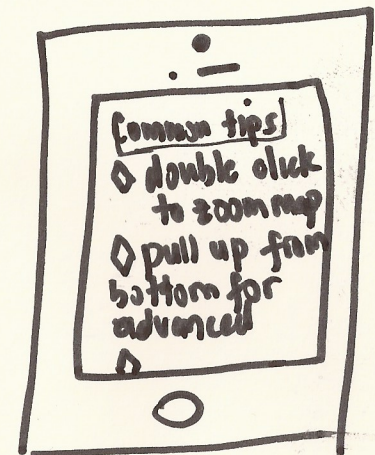 Common tips
◊ double click
to zoom map
◊ pull up from
bottom for
advanced
◊